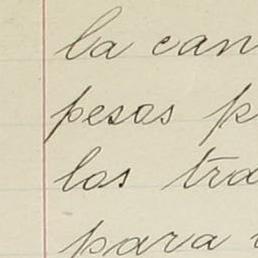 la can
pesos p
los tra
para